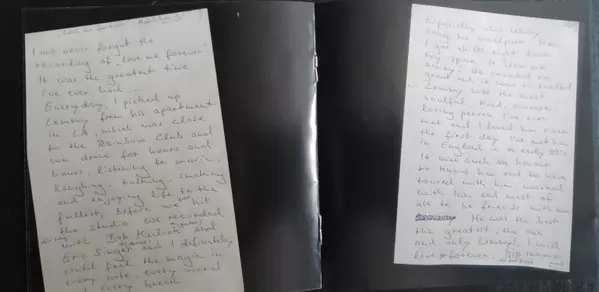 "Love me forever"
I will never forget the
recording of "Love me forever"
It was the greatest time
I've ever had...
Everyday, I picked up
Lemmy from his apartment
in LA, which was close
to the Rainbow Club and
we drove for hours and
hours, listening to music,
laughing, talking, smoking
and enjoying life to the
fullest, before we hit
the studio. We recorded
with Bob Kulick and
Eric Singer and I definitely
could feel the magic in
every note, every word
every breath
Especially when Lemmy
sang his
I got chills right down
my spine. It blew me
away. He sounded so
great and it was so
Lemmy was the most
soulful, kind, sincere,
loving person I've ever
met and I loved him since
the first day I've met him
in England in early 80's
It was such an honor
to know him and to have
toured with him, worked
with him and most of
all to be friends with him
He was the best
the greatest, the one
and only Lemmy! I will
love forever. RIP